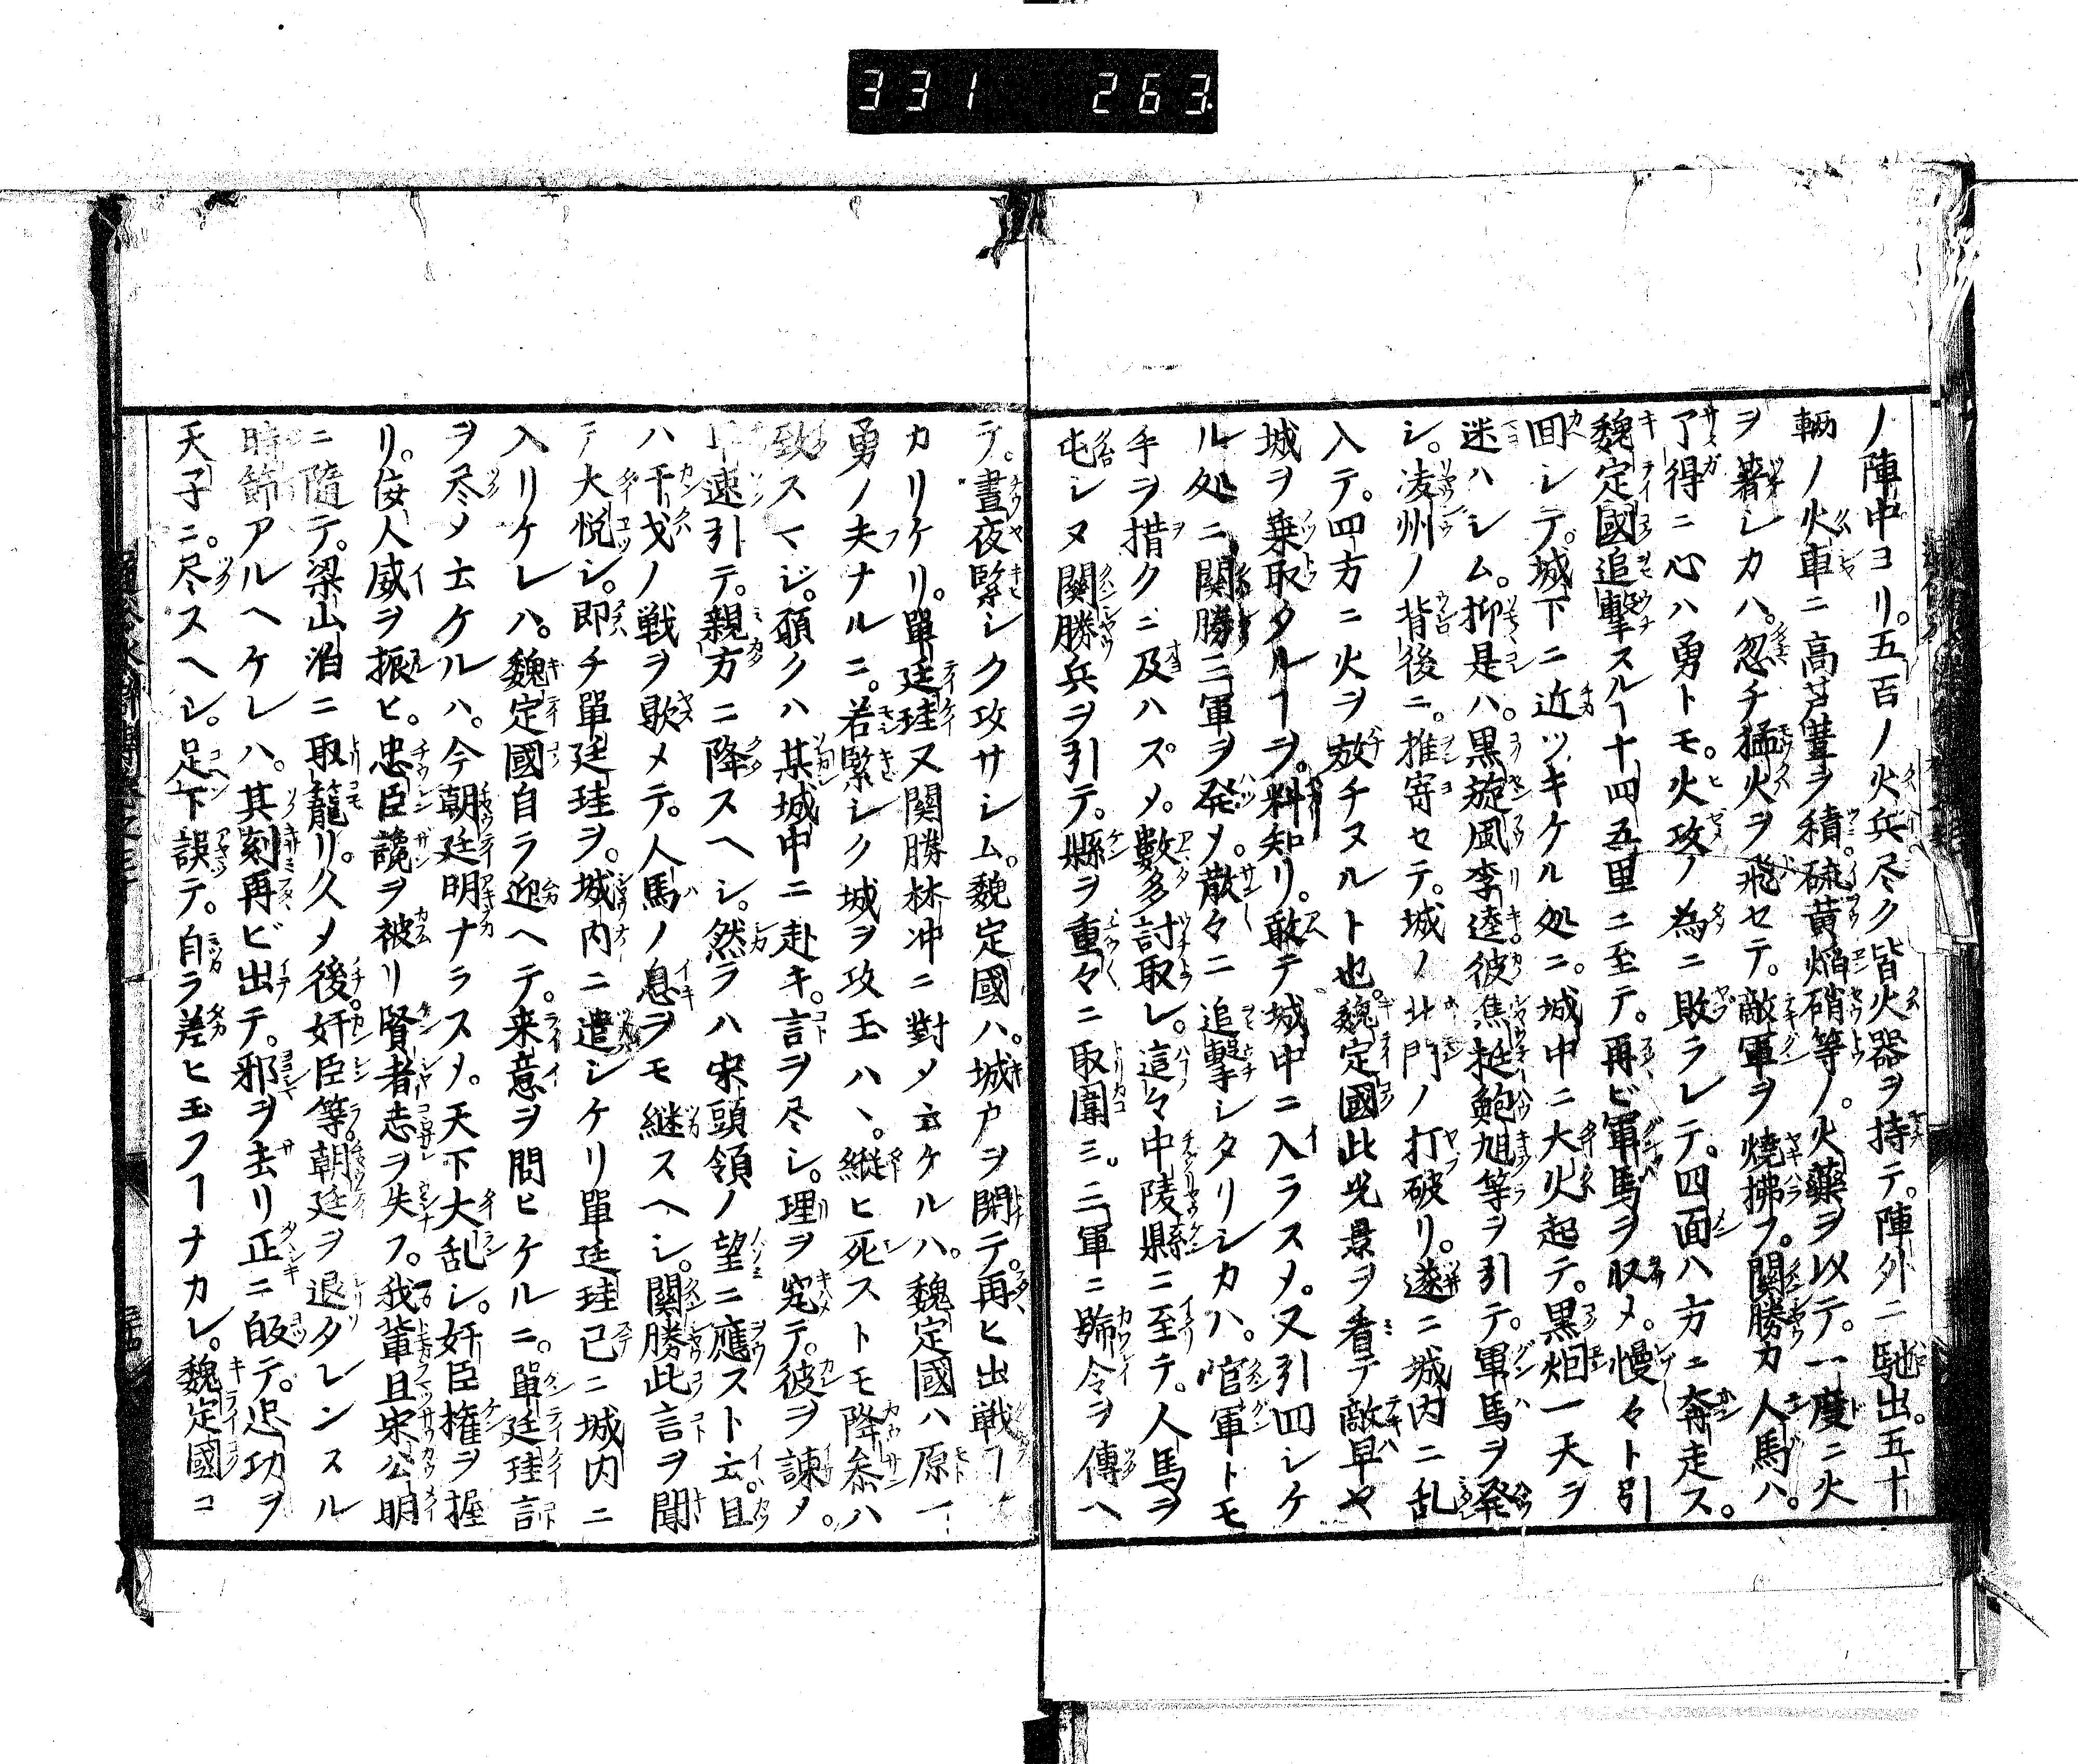 331 263
ノ陣中ヨリ。五百ノ火兵尽ク皆火器ヲ持テ。陣外ニ馳出。五十
輌ノ火車ニ高芦葦ヲ積。硫黄焔硝等ノ。火藥ヲ以テ。一度ニ火
ヲ著シカハ。忽チ猛火ヲ飛セテ。敵軍ヲ燒拂フ。關勝カ人馬ハ。
了得ニ心ハ勇トモ。火攻ノ為ニ敗ラレテ。四面八方ニ奔走ス。
魏定國追撃スルヿ十四五里ニ至テ。再ビ軍馬ヲ収メ。慢々ト引
回シテ。城下ニ近ツキケル処ニ。城中ニ大火起テ。黒烟一天ヲ
迷ハシム。抑是ハ。黒旋風李逵彼焦挺鮑旭等ヲ引テ。軍馬ヲ発
シ。凌州ノ背後ニ。推寄セテ。城ノ北門ノ打破リ。遂ニ城内ニ乱
入テ。四方ニ火ヲ放チヌルト也。魏定國此光景ヲ看テ敵早ヤ
城ヲ乗取タルヿヲ。料知リ。敢テ城中ニ入ラスメ。又引回シケ
ル処ニ關勝三軍ヲ発メ。散々ニ追撃シタリシカハ。官軍トモ
手ヲ措クニ及ハスメ。數多討取レ。這々中陵縣ニ至テ。人馬ヲ
屯シヌ關勝兵ヲ引テ。縣ヲ重々ニ取圍ミ。三軍ニ號令ヲ傳ヘ
テ。晝夜緊シク攻サシム。魏定國ハ。城戸ヲ閉テ。再ヒ出戦フヿ
カリケリ。單廷珪ヌ關勝林冲ニ對メ云ケルハ。魏定國ハ原一
勇ノ夫ナルニ。若緊シク城ヲ攻玉ハヽ。縦ヒ死ストモ降叅ハ
致スマジ。願クハ某城中ニ赴キ。言ヲ尽シ。理ヲ究テ。彼ヲ諫メ。
早速引テ。親方ニ降スヘシ。然ラハ宋頭領ノ望ニ應スト云。且
ハ干戈ノ戦ヲ歇メテ。人馬ノ息ヲモ継スヘシ。關勝此言ヲ聞
テ大悦シ。即チ單廷珪ヲ。城内ニ遣シケリ單廷珪已ニ城内ニ
入リケレハ。魏定國自ラ迎ヘテ。来意ヲ問ヒケルニ。單廷珪言
ヲ尽メ云ケルハ。今朝廷明ナラスメ。天下大乱シ。奸臣權ヲ握
リ。侫人威ヲ振ヒ。忠臣讒ヲ被リ賢者志ヲ失フ。我輩且宋公明
ニ隨テ。梁山泊ニ取籠リ。久メ後。奸臣等。朝廷ヲ退ダレンスル
時節アルヘケレハ。其刻再ビ出テ。邪ヲ去リ正ニ皈テ。迟功ヲ
天子ニ。尽スヘシ。足下誤テ。自ラ差ヒ玉フヿナカレ。魏定國コ